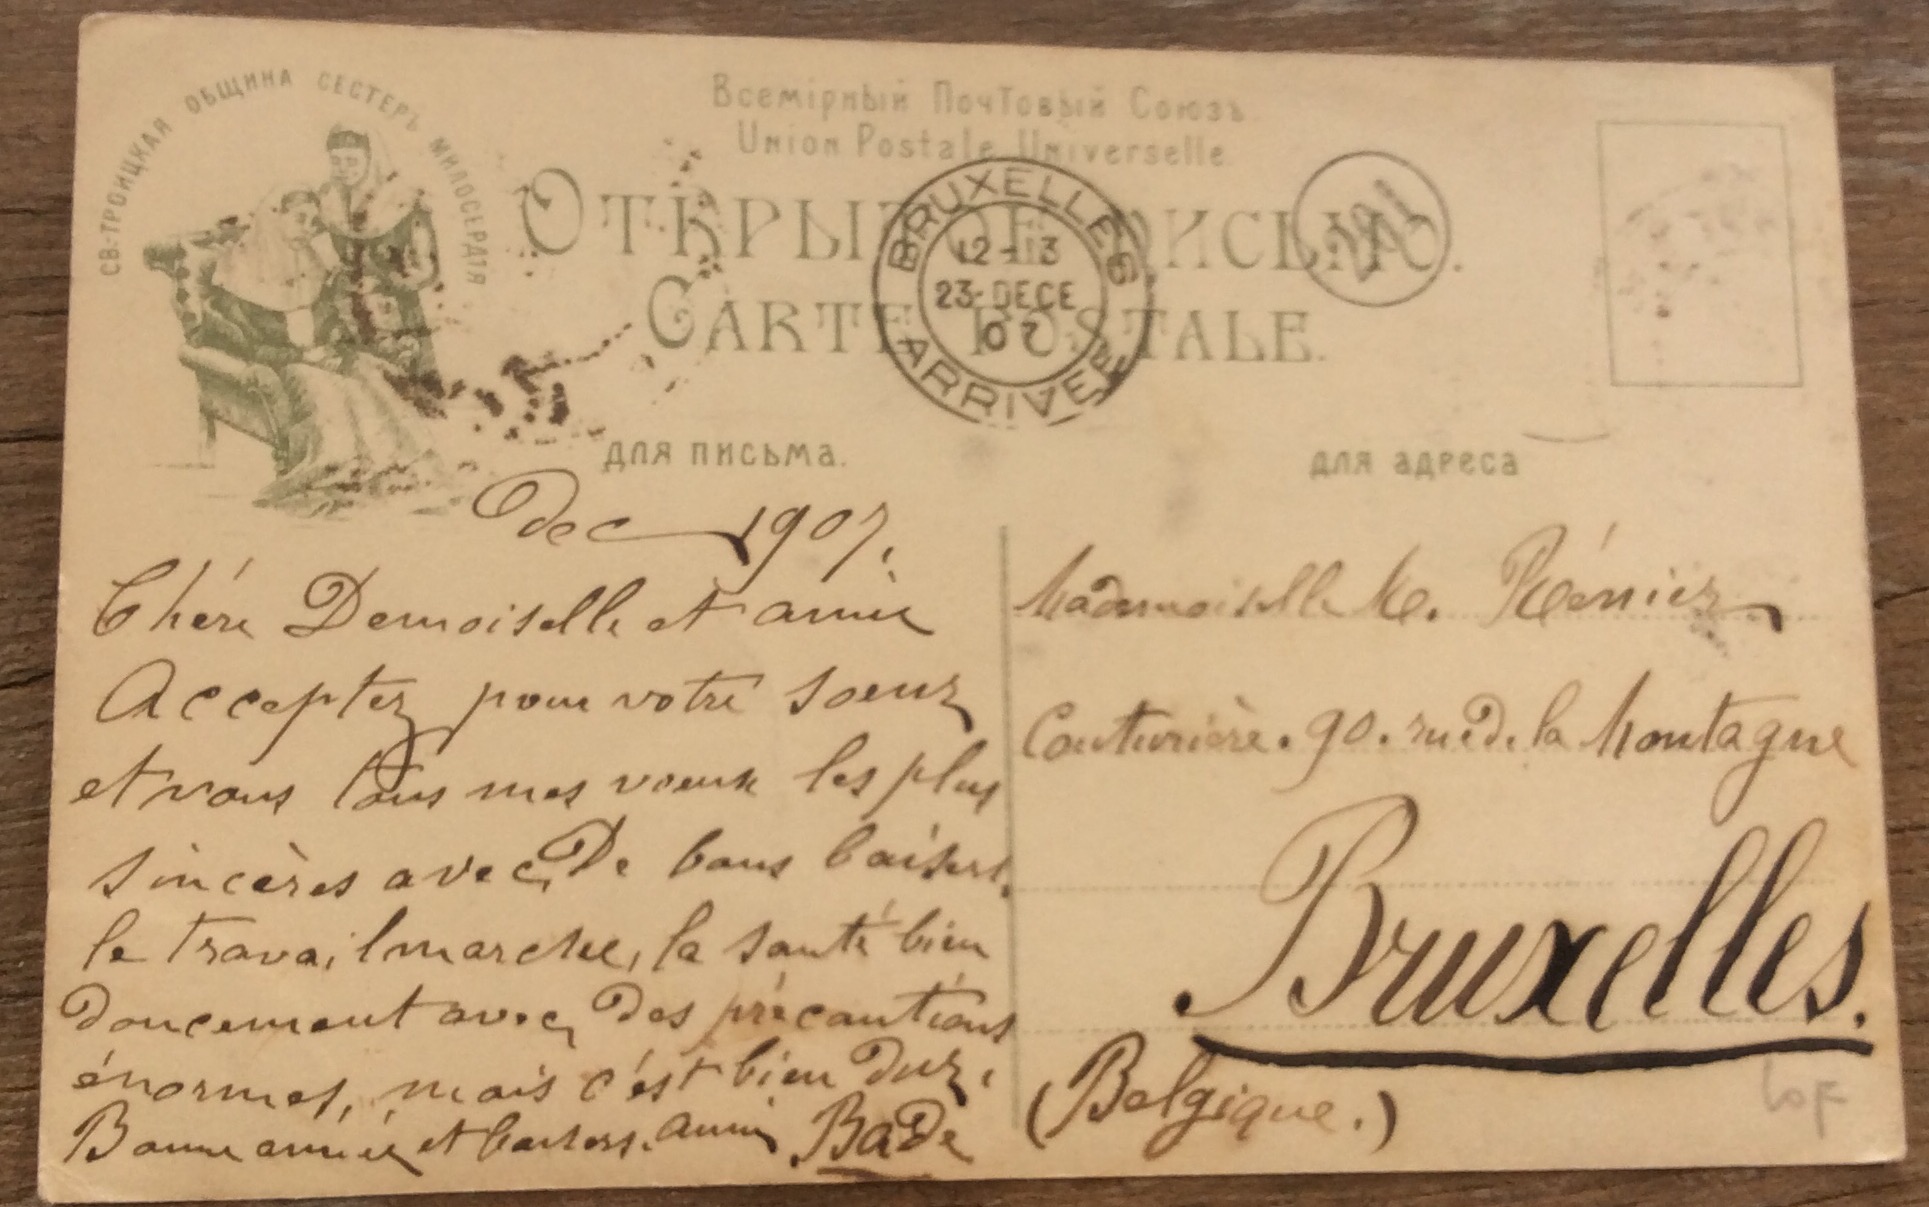 СВ-ТРОИЦКАЯ ОБЩИНА СЕСТЕРЪ МИЛОСЕРДІЯ
Всемірный Почтовый Союзъ.
Union Postale Universelle.
ОТКРЫТОЕ ПИСЬМО.
CARTE POSTALE.
BRUXELLES 6
12-13
23-DECE
07
ARRIVEE
для письма.
для адреса
Dec 1907.
Chére Demoiselle et amie
Acceptez pour votre soeur
et vous tous mes voeux les plus
sincères avec De bons baisers.
le travail marche, la santé bien
doucement avec Des précautions
énormes, mais c'est bien dur.
Bonne année et baisers. amie BaDe
Mademoiselle M. Rénier
Couturière. 90. rue d. la Montagne
Bruxelles.
(Belgique.)